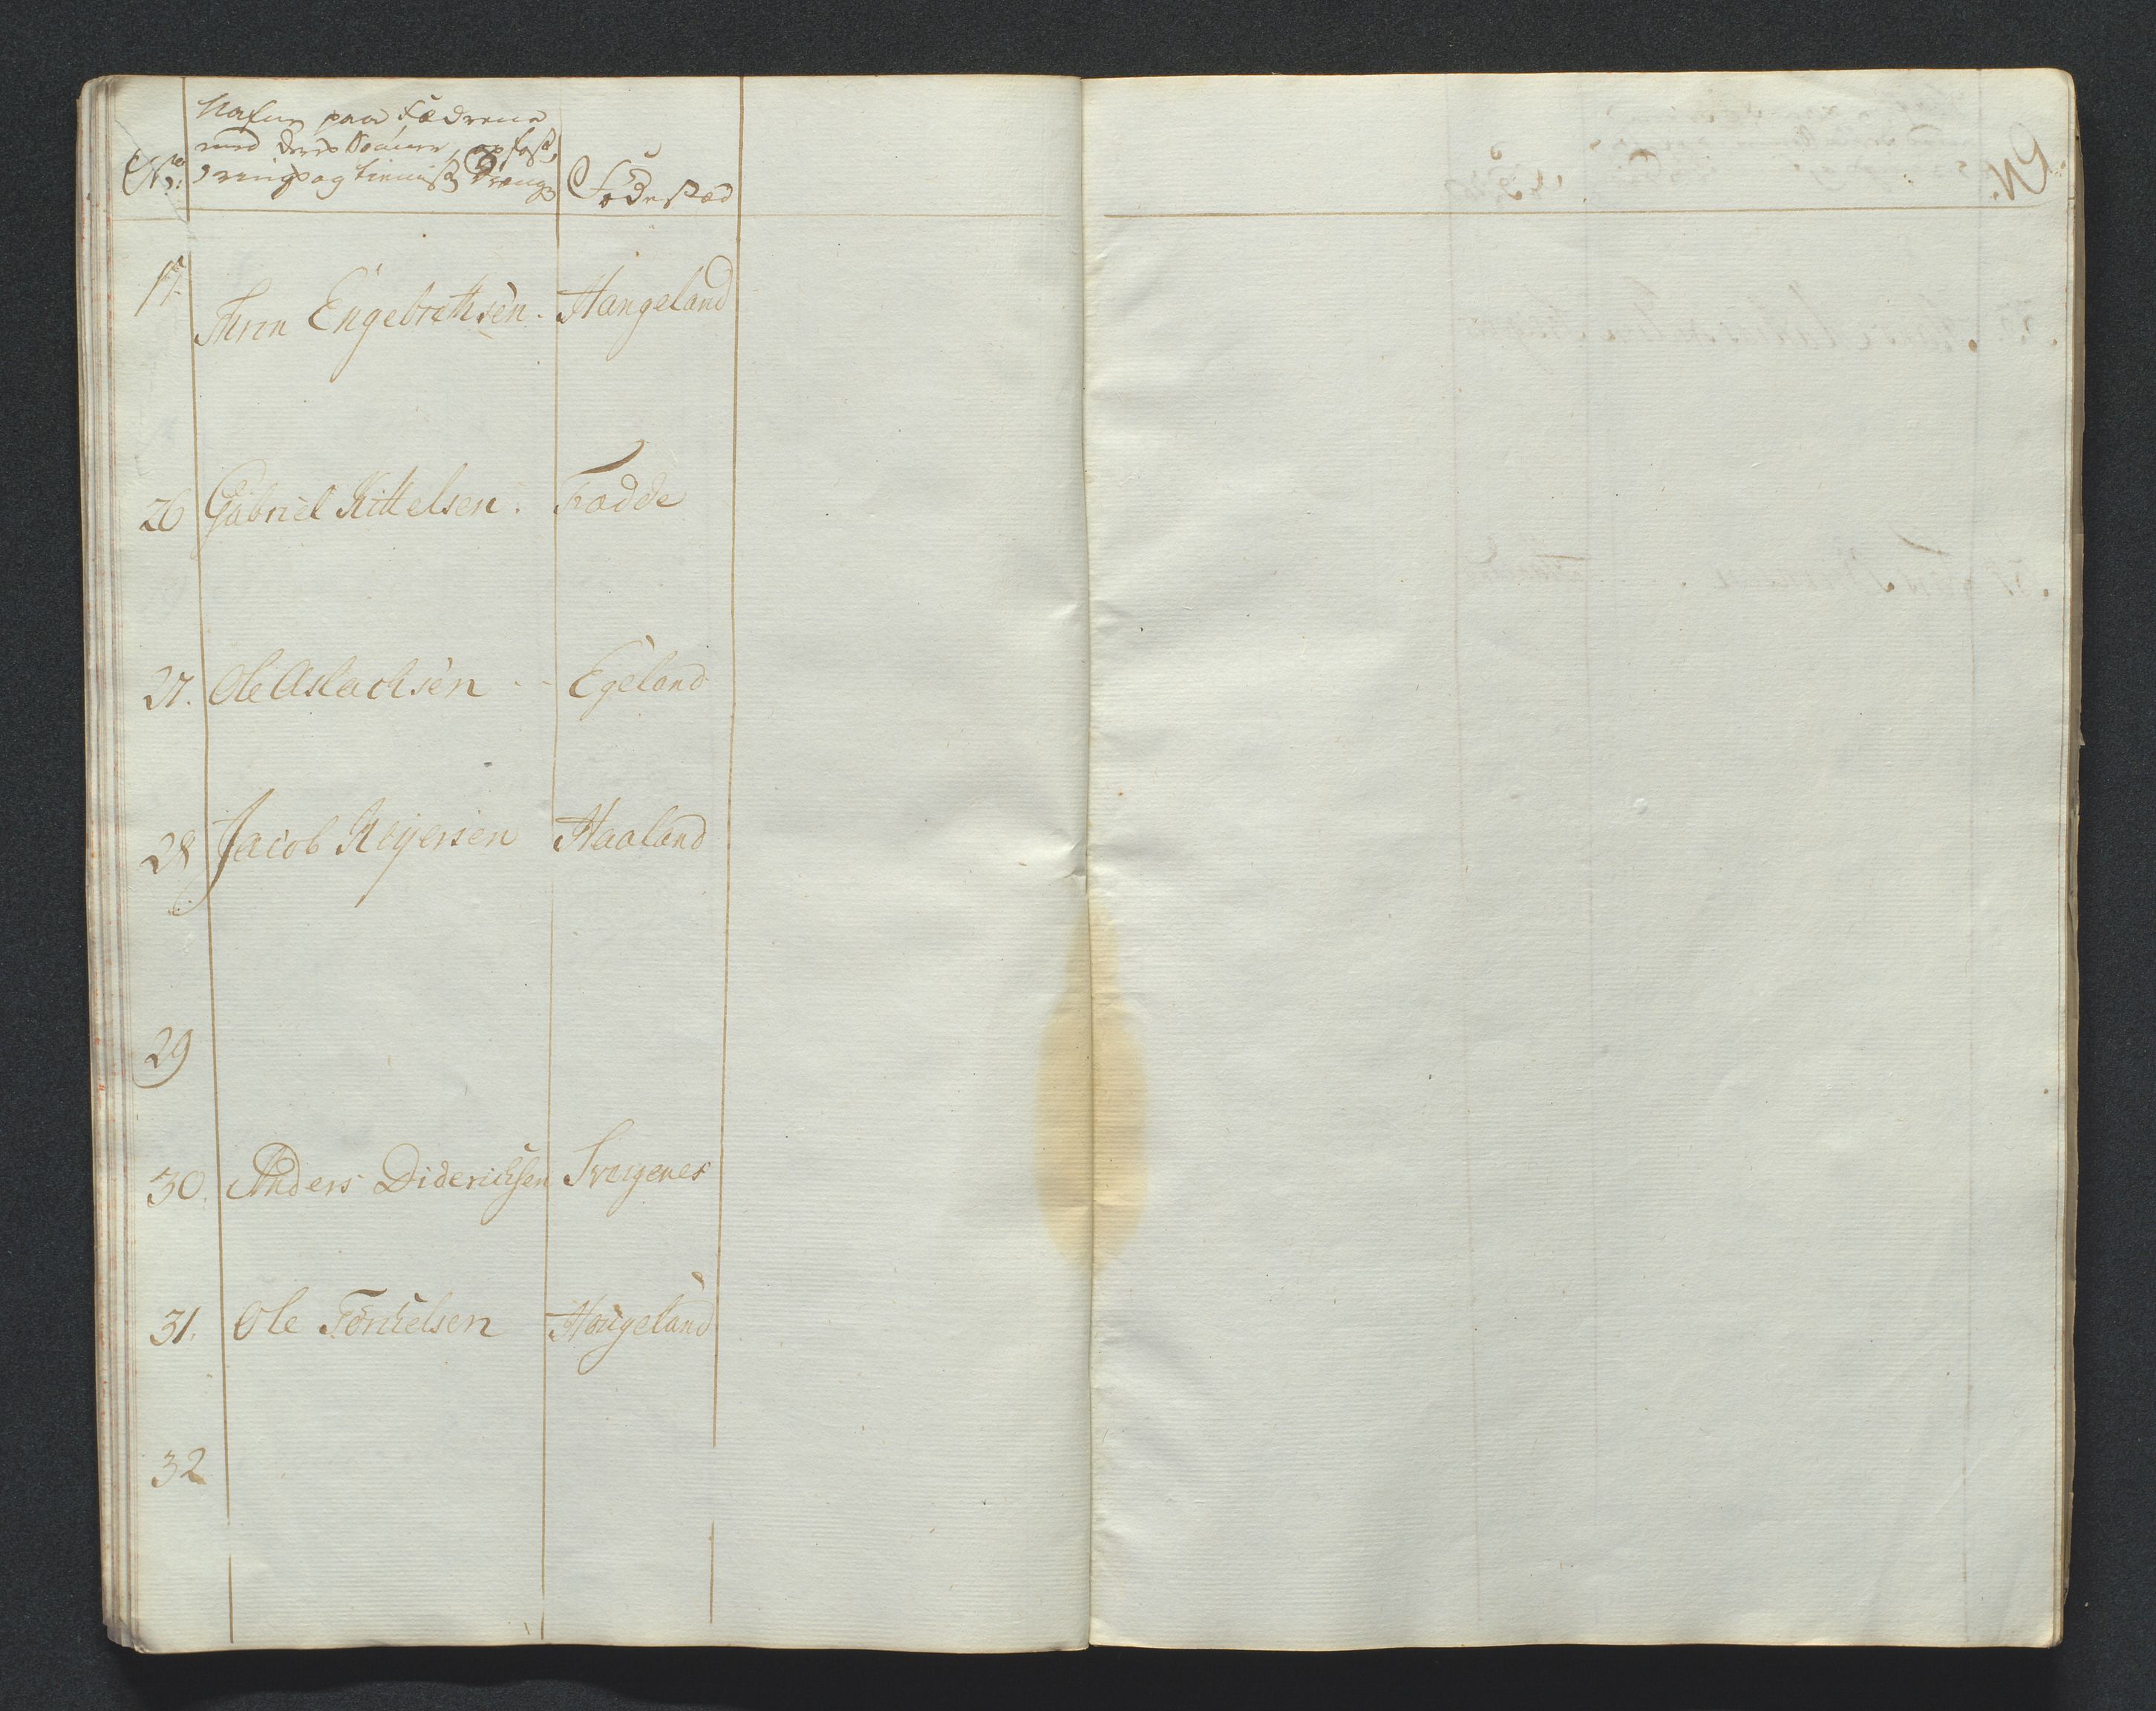 No: Nafne paa Fædrene
med deres Sönner, opfost,
drings og tienniste Drenge Födestæd
17. Thron Engebrethsen. Hangeland
26 Gabriel Kittelsen. Fadde
27. Ole Aslachsen - - Egeland
28 Jacob Reyersen Haaland
29
30. Anders Diderichsen Sveigenes
31. Ole Tönnelsen Haugeland
32